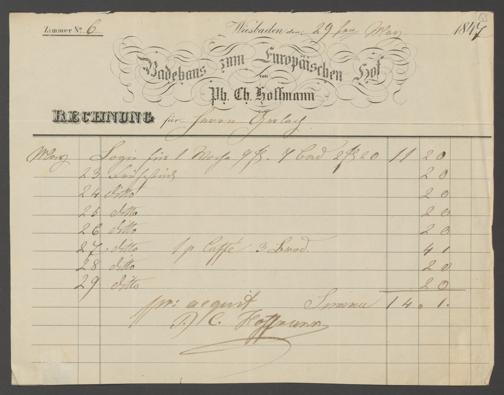 Zimmer No. 6
Wiesbaden den 29ten May 1847
Badehaus zum Europäischen Hof
von
Ph. Ch. Hoffmann
RECHNUNG für Herrn Gerlach
May Logis für 1 Woche 9 fl. 7 Bad 2 fl 20 11 20
23 Frühstück 20
24 ditto 20
25 ditto 20
26 ditto 20
27 ditto 1 p Caffé 3 Brod 41
28 ditto 20
29 ditto 20
Summa 14. 1.
pr: acquit
P. C. Hoffmann